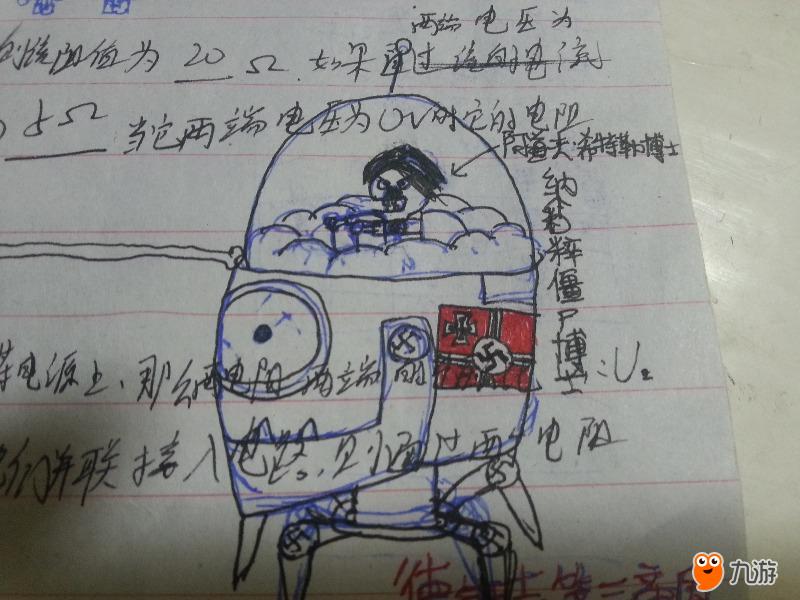 两端电压为
阻值为 20 Ω. 如果通过
5Ω 当它两端电压为0V时它的电阻
阿道夫·希特勒博士
纳粹僵尸博士
电源上、那么两电阻两端的
:U₂
并联接入电路、则通过两电阻
九游